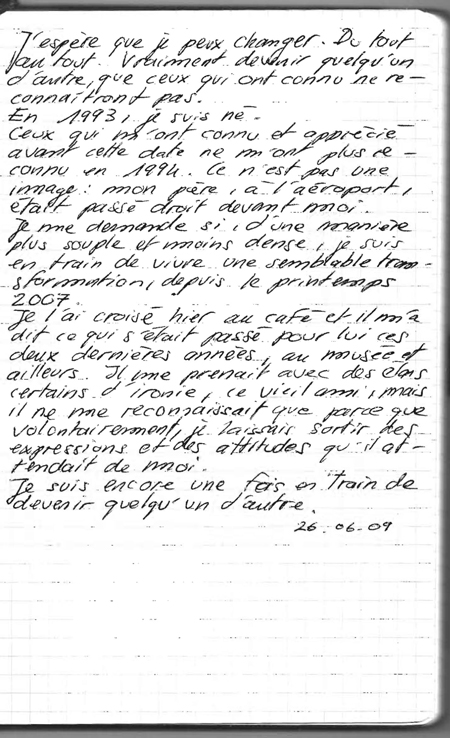 J'espère que je peux changer. Du tout
au tout. Vraiment devenir quelqu'un
d'autre, que ceux qui ont connu ne re-
connaîtront pas.
En 1993, je suis né.
Ceux qui m'ont connu et apprécié
avant cette date ne m'ont plus re-
connu en 1994. Ce n'est pas une
image : mon père, à l'aéroport,
était passé droit devant moi.
Je me demande si, d'une manière
plus souple et moins dense, je suis
en train de vivre une semblable tran-
sformation, depuis le printemps
2007.
Je l'ai croisé hier au café et il m'a
dit ce qui s'était passé pour lui ces
deux dernières années, au musée et
ailleurs. Il me prenait avec des élans
certains d'ironie, ce vieil ami, mais
il ne me reconnaissait que parce que
volontairement, je laissais sortir des
expressions et des attitudes qu'il at-
tendait de moi.
Je suis encore une fois en train de
devenir quelqu'un d'autre.
26.06.09